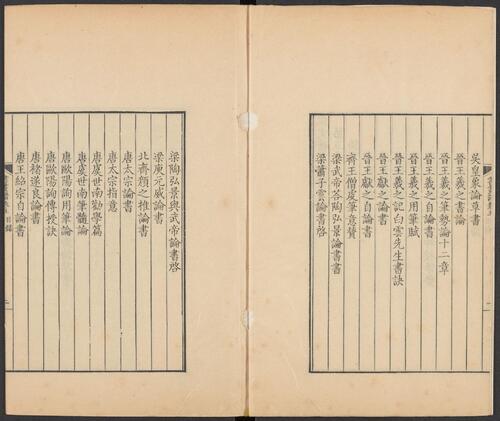 吳皇象論草書
晉王羲之書論
晉王羲之筆勢論十二章
晉王羲之用筆賦
晉王羲之自論書
晉王羲之記白雲先生書訣
晉王獻之論書
晉王獻之自論書
齊王僧虔筆意贊
梁武帝答陶弘景論書書
梁蕭子雲論書啓
梁陶弘景與武帝論書啓
梁庾元威論書
北齊顏之推論書
唐太宗論書
唐太宗指意
唐虞世南勸學篇
唐虞世南筆髓論
唐歐陽詢用筆論
唐歐陽詢傳授訣
唐褚遂良論書
唐王紹宗自論書